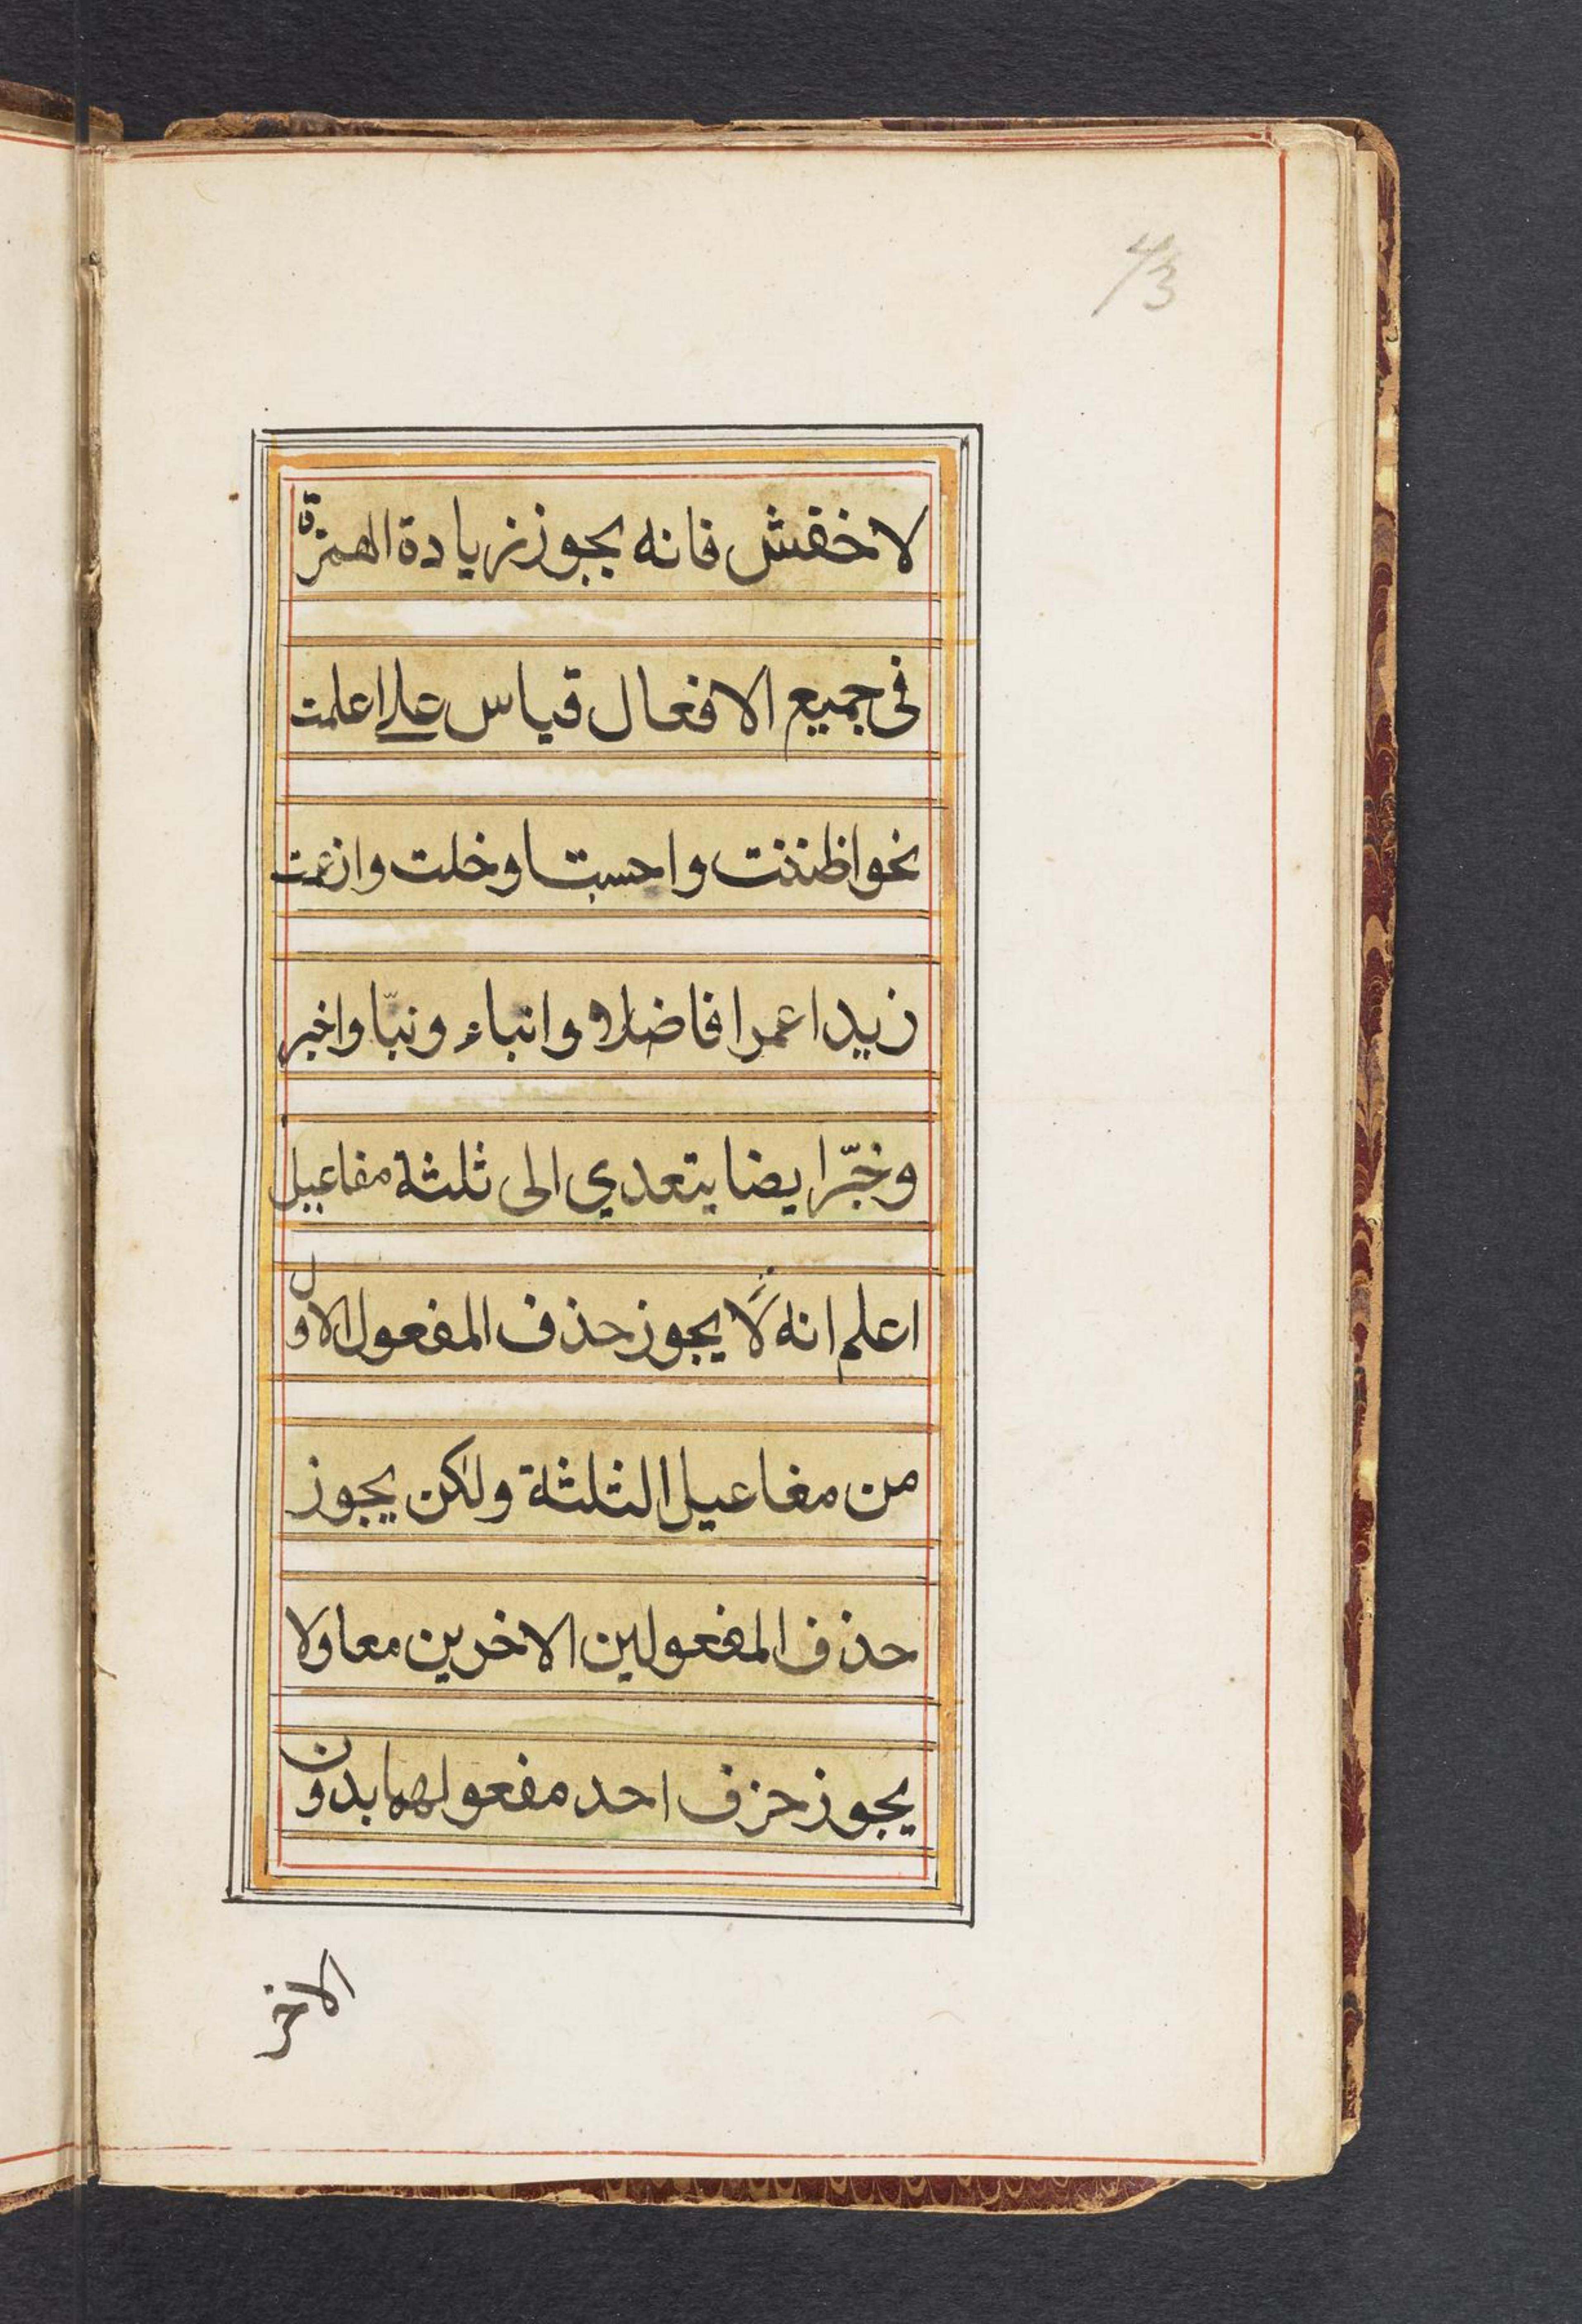 43
لاخفش فانه يجوز زيادة الهمزة
فى جميع الافعال قياس على اعلمت
نحو اظننت واحسبت اوخلت وازعمت
زيدا عمرا فاضلا وانباء ونبّا واخبر
وخبّر ايضا يتعدي الى ثلثة مفاعيل
اعلم انه لا يجوز حذف المفعول الاول
من مفاعيل الثلثة ولكن يجوز
حذف المفعولين الاخرين معا ولا
يجوز حزف احد مفعولهما بدون
الاخر